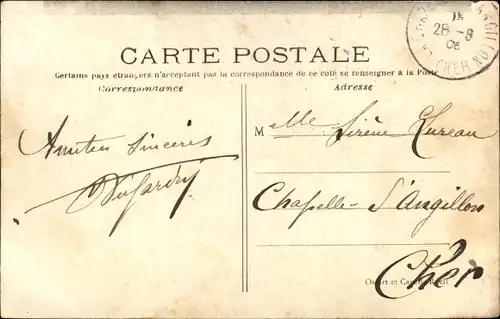 CARTE POSTALE
Certains pays étrangers n'acceptant pas la correspondance de ce coté se renseigner à la Poste
Correspondance
Adresse
Amitiés Sincères
Melle Sirène Lureau
Chapelle-d'Angillon
Cher
28-8
CHER